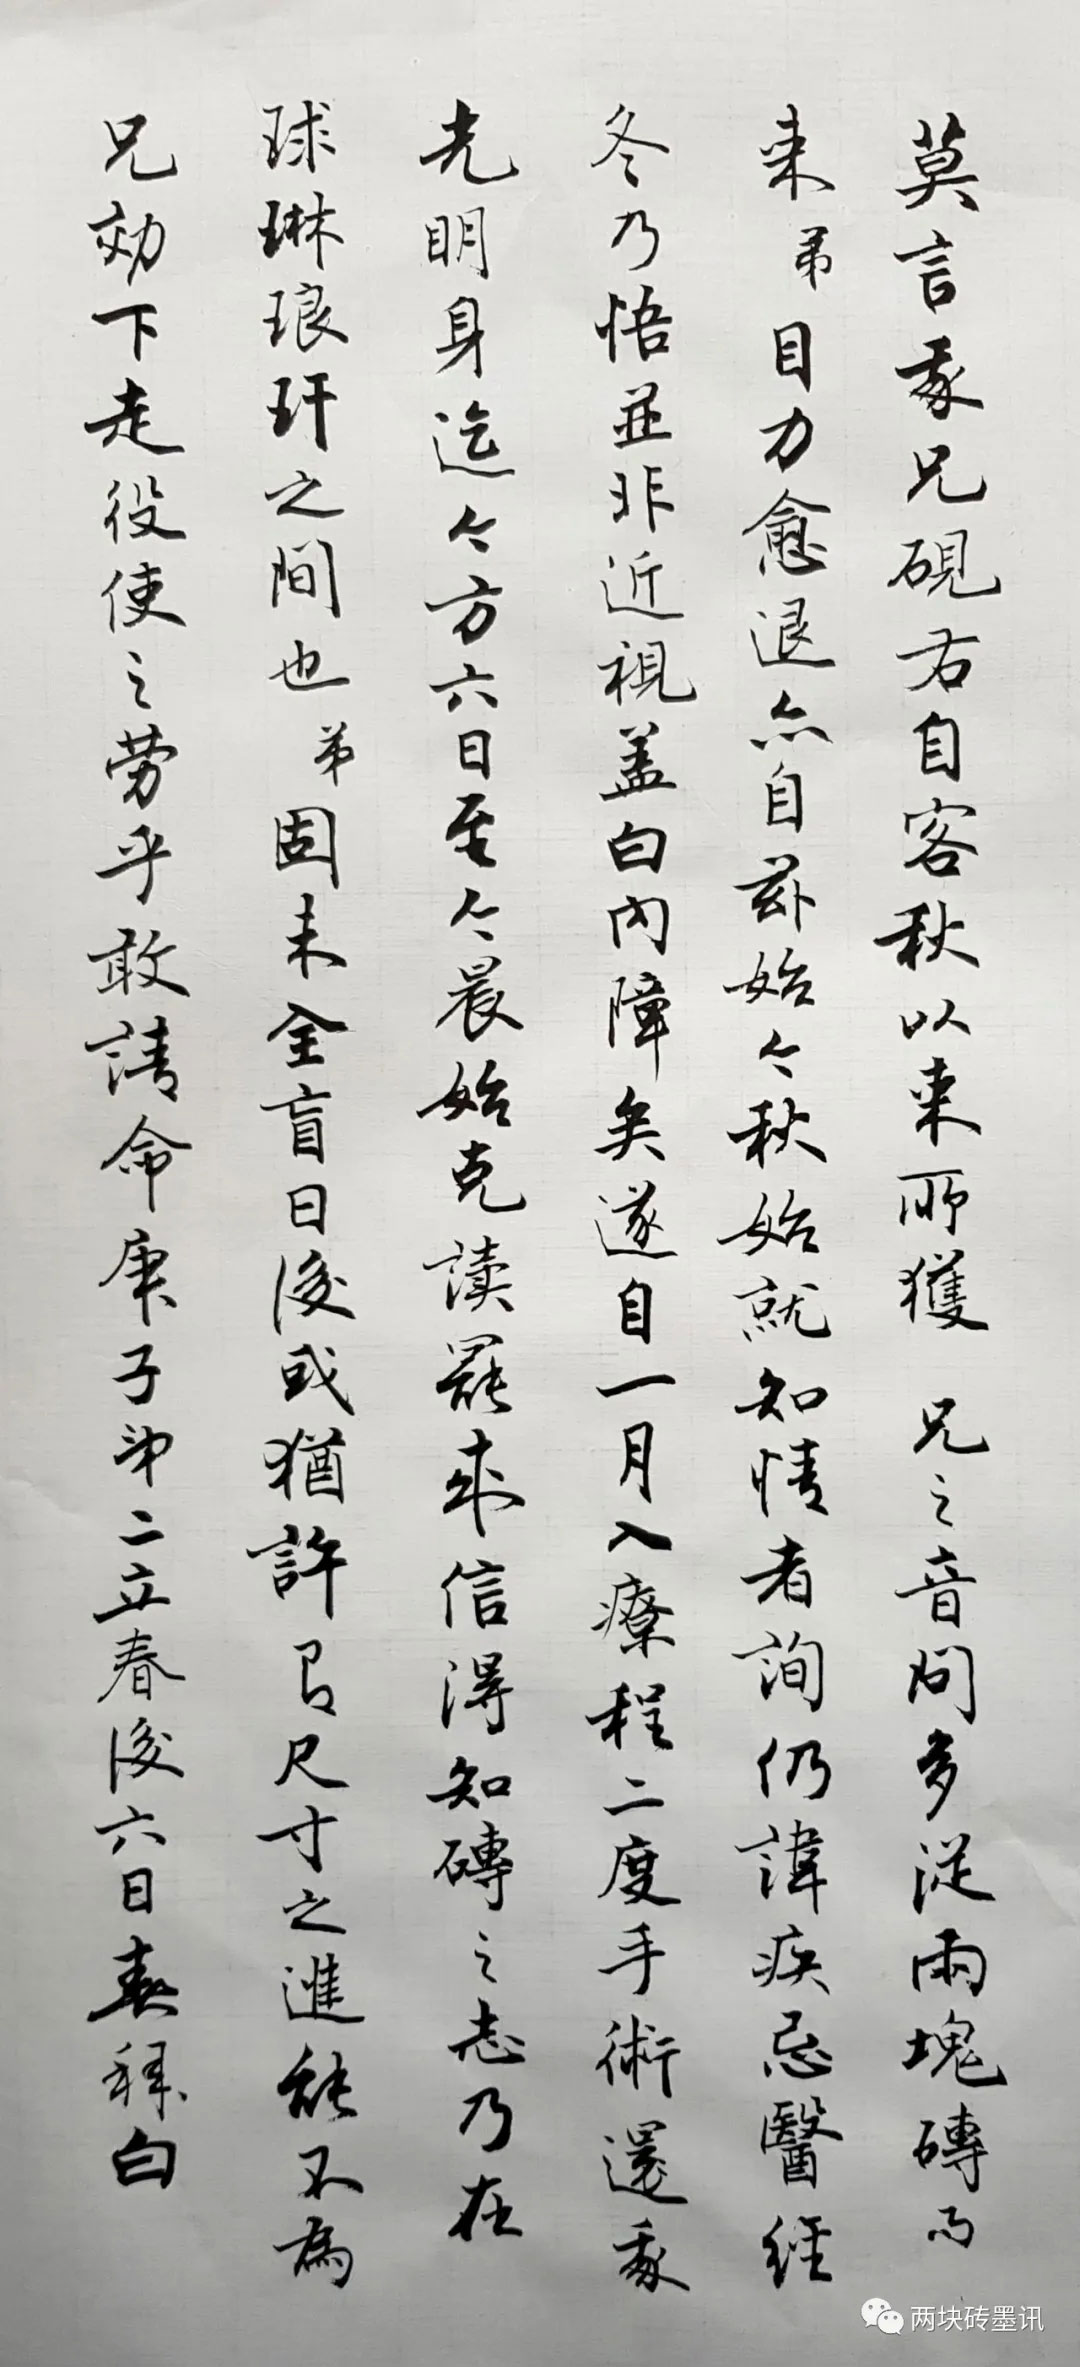 莫言我兄硯右自客秋以来所獲 兄之音問多從兩塊磚而
来弟目力愈退亦自茲始今秋始就知情者詢仍諱疾忌醫經
冬乃悟並非近視盖白内障矣遂自一月入療程二度手術還我
光明身迄今方六日至今晨始克讀罷来信得知磚之志乃在
球琳琅玕之間也弟固未全盲日後或猶許有尺寸之進能不為
兄効下走役使之勞乎敢請命庚子第二立春後六日 拜白
两块砖墨讯